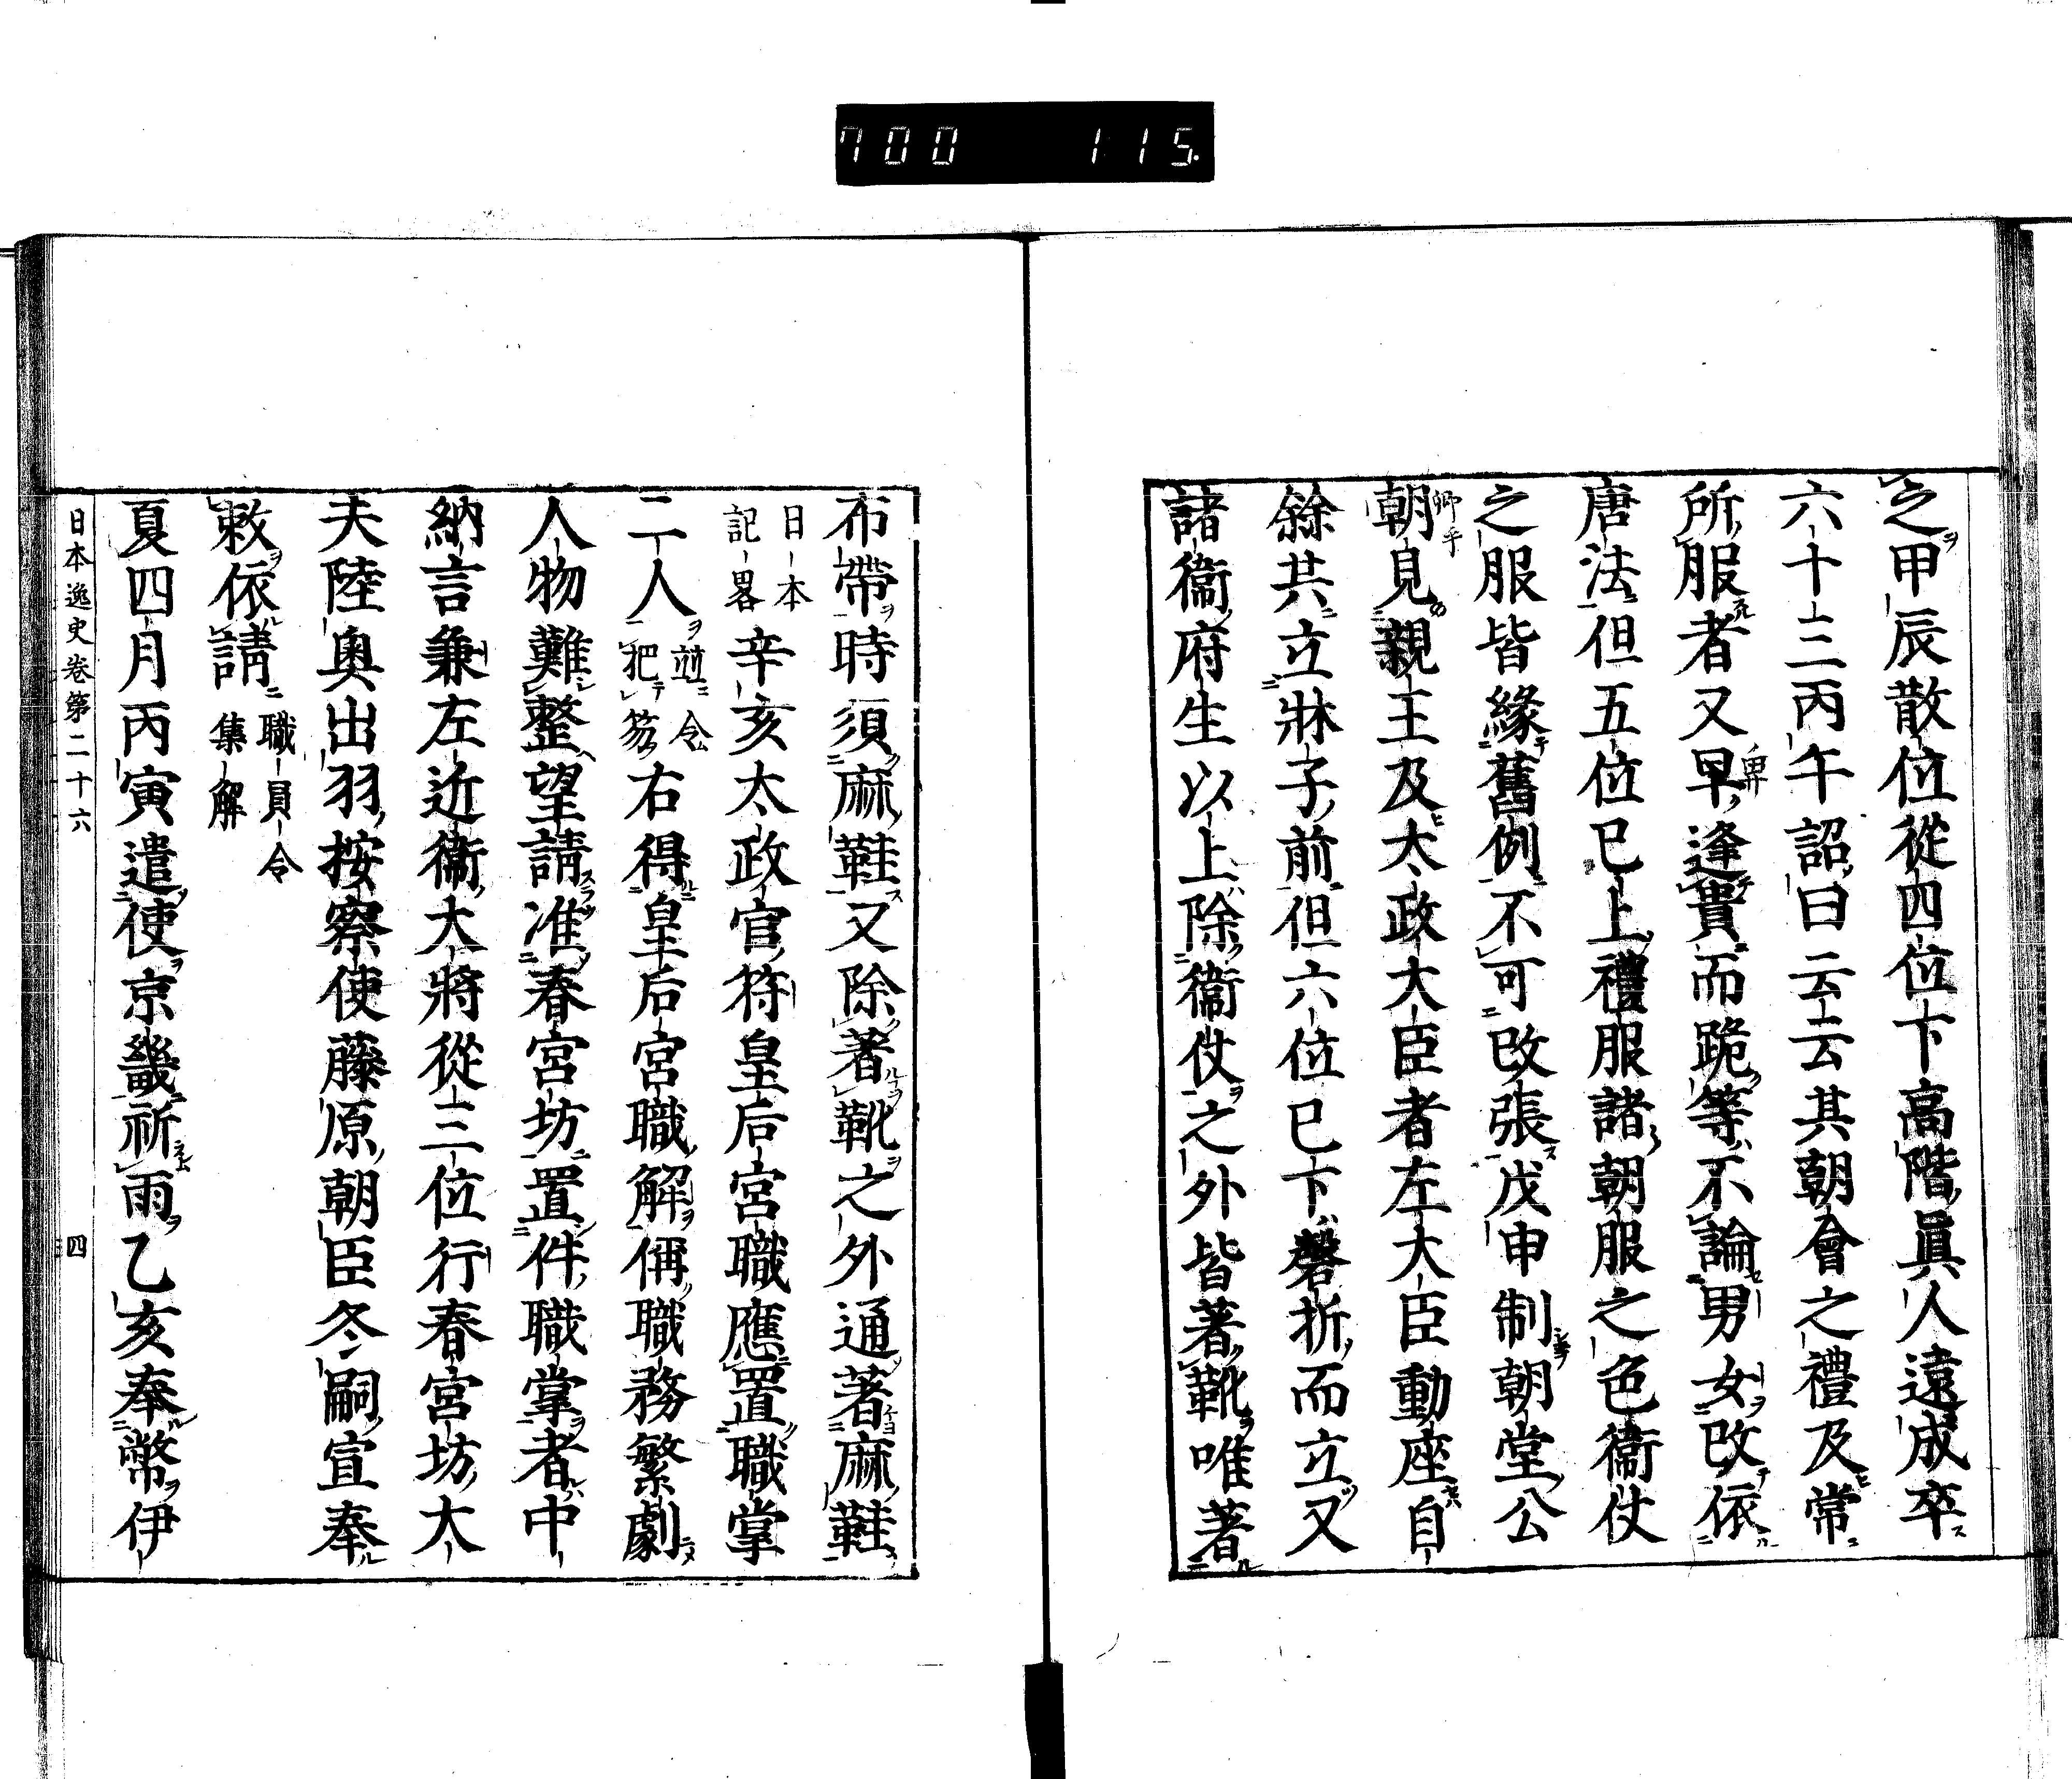 700 115.
之甲辰散位從四位下高階眞人遠成卒
六十三丙午詔曰云云其朝會之禮及常
所服者又早逢貴而跪等不論男女改依
唐法但五位已上禮服諸朝服之色衞仗
之服皆緣舊例不可改張戊申制朝堂公
朝見親王及太政大臣者左大臣動座自
餘共立牀子前但六位已下磬折而立又
諸衞府生以上除衞仗之外皆著靴唯著
布帶時須麻鞋又除著靴之外通著麻鞋
日本
記畧
辛亥太政官符皇后宮職應置職掌
二人
並令
把笏
右得皇后宮職解偁職務繁劇
人物難整望請准春宮坊置件職掌者中
納言兼左近衞大將從三位行春宮坊大
夫陸奧出羽按察使藤原朝臣冬嗣宣奉
敕依請
職員令
集解
夏四月丙寅遣使京畿祈雨乙亥奉幣伊
日本逸史卷第二十六 四